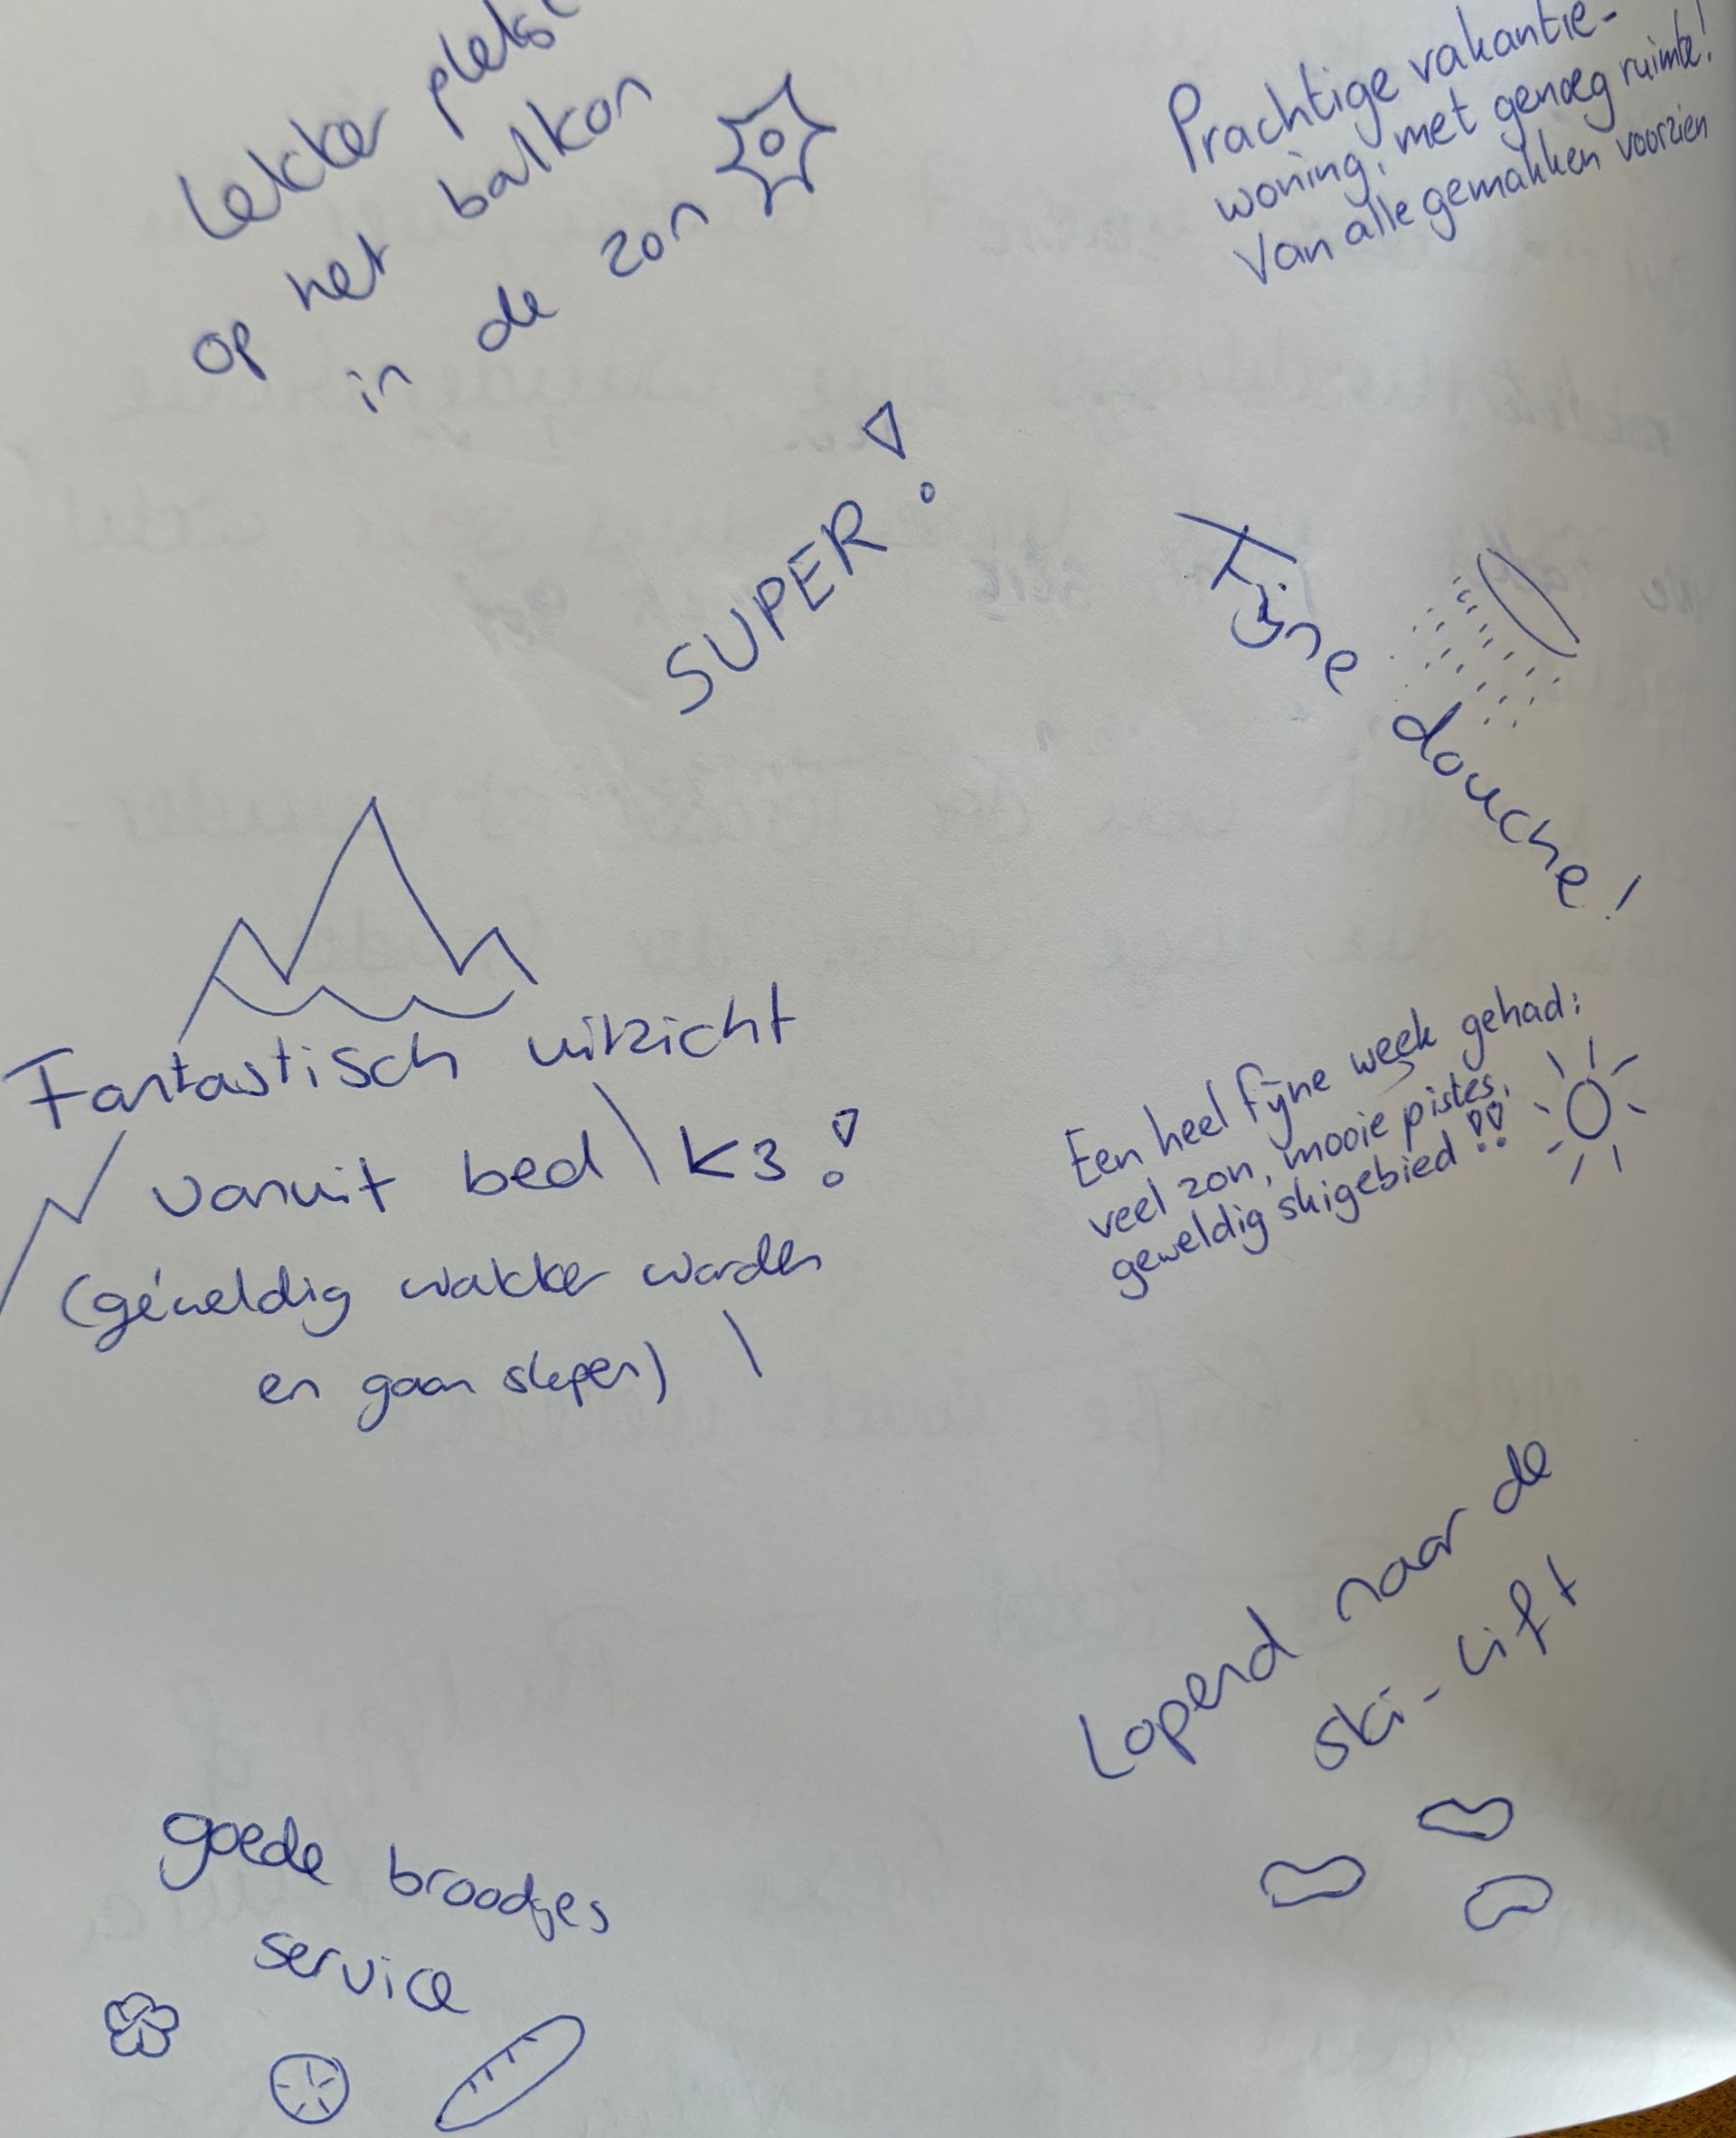 Lekker plekje
op het balkon
in de zon
Prachtige vakantie-
woning, met genoeg ruimte!
Van alle gemakken voorzien
SUPER!
Fijne douche!
Fantastisch uitzicht
vanuit bed \ K3!
(géweldig wakker worden
en gaan slapen)
Een heel fijne week gehad:
veel zon, mooie pistes,
geweldig skigebied!!
Lopend naar de
ski-lift
goede broodjes
service